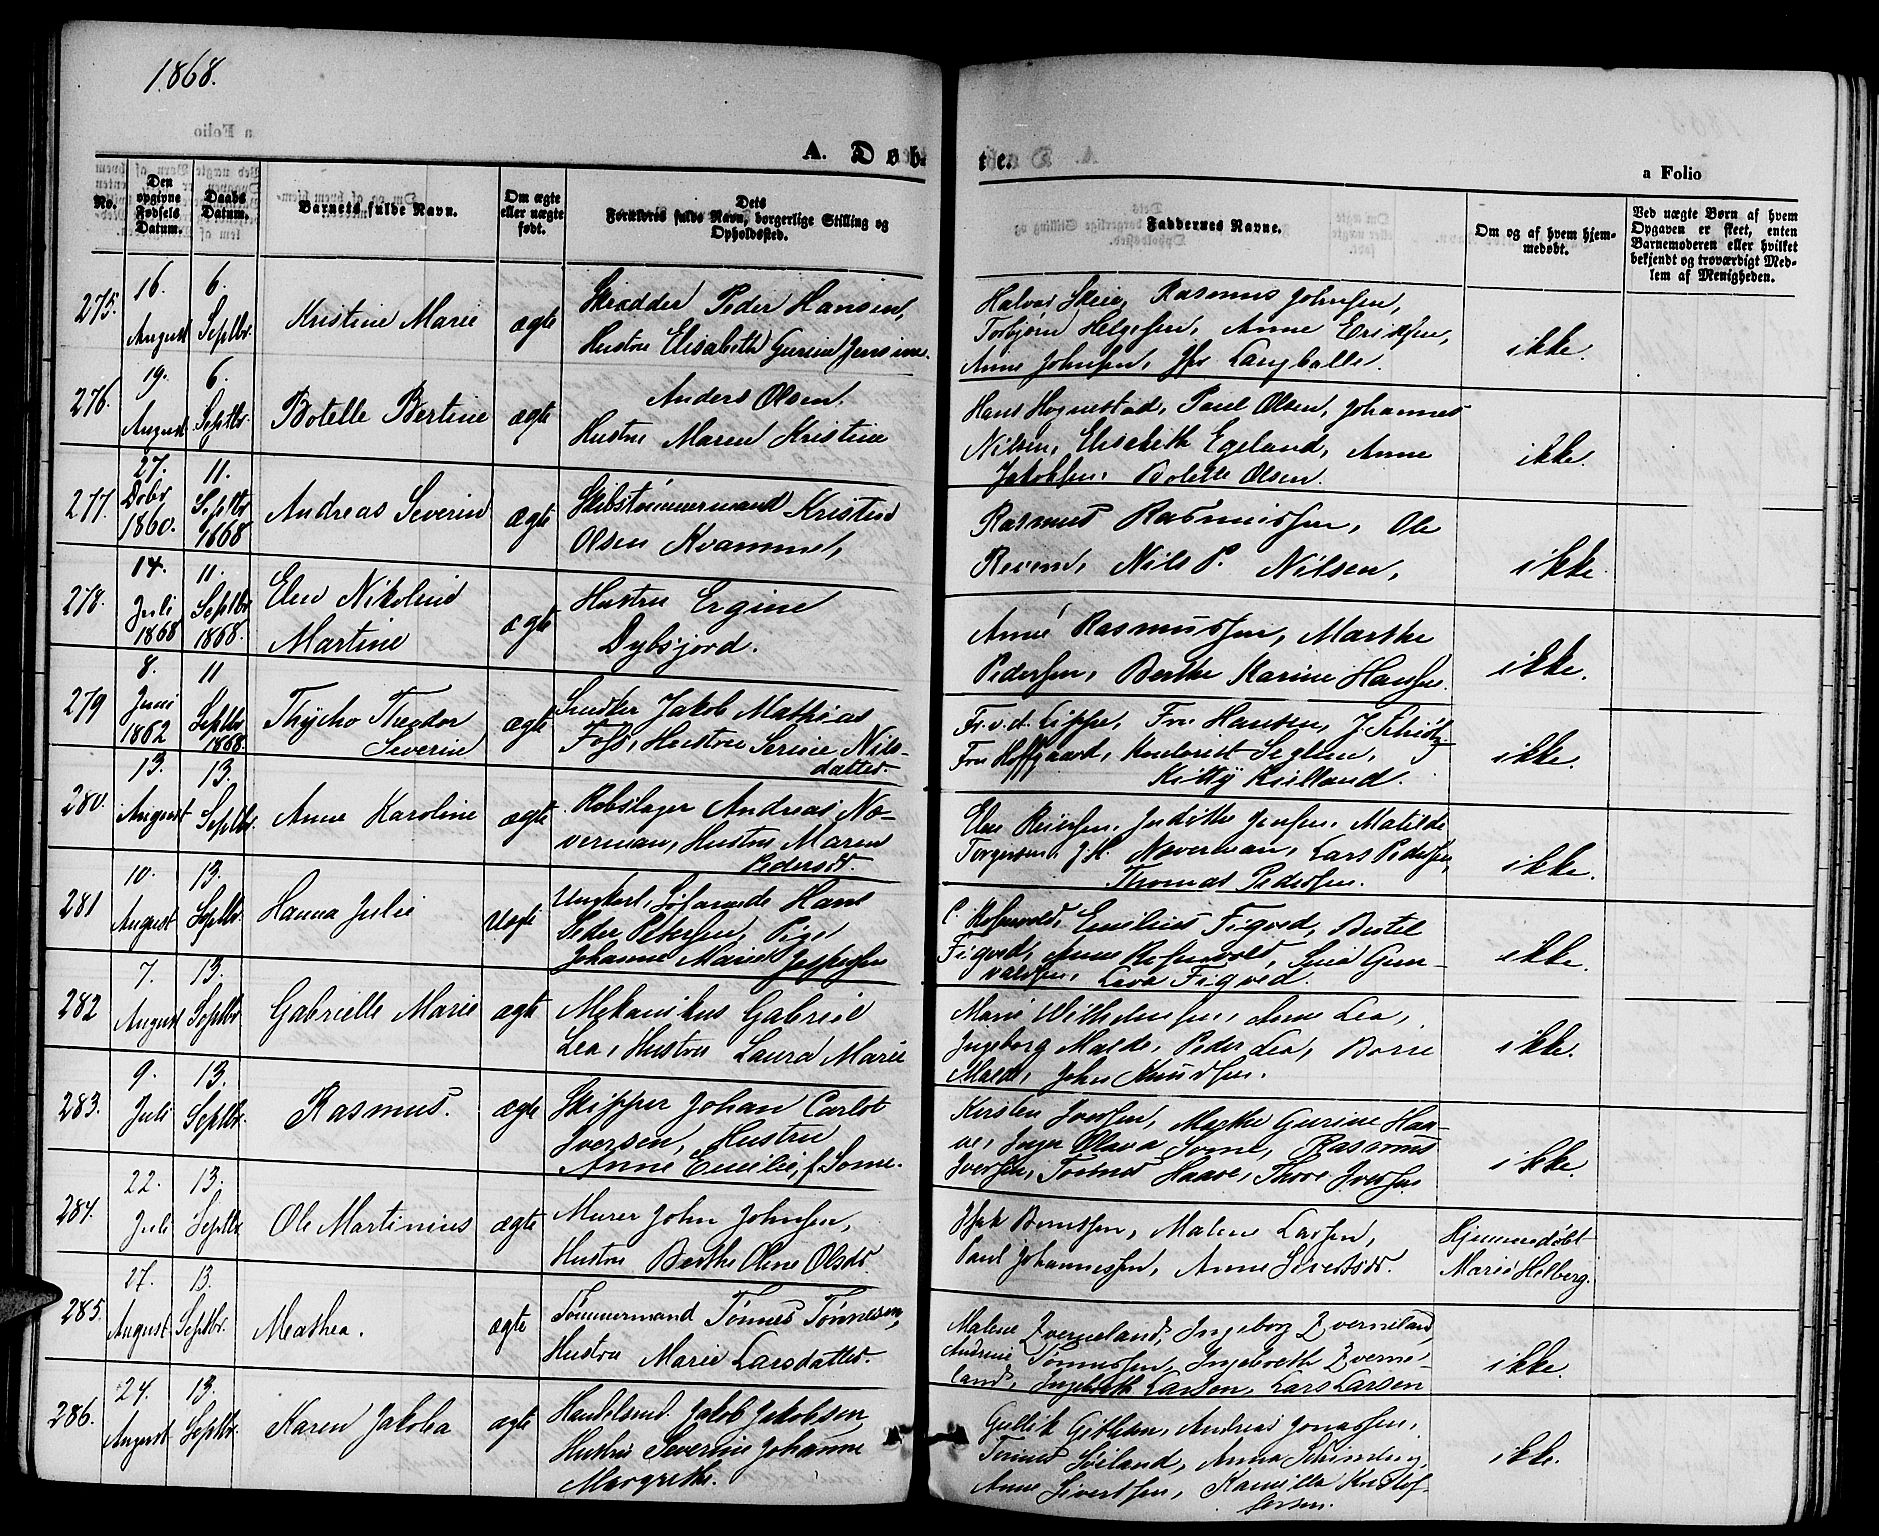 1868.
A. Døb
te.
a Folio
No.
Den opgivne Fødsels Datum.
Daabs Datum.
Barnets fulde Navn.
Om ægte eller uægte født.
Dets Forældres fulde Navn, borgerlige Stilling og Opholdssted.
Faddernes Navne.
Om og af hvem hjemmedøbt.
Ved uægte Børn af hvem Opgaven er skeet, enten Barnemoderen eller hvilket bekjendt og troværdigt Medlem af Menigheden.
275. 16. August 6. Septbr. Kristine Marie ægte Skrædder Peder Hansen,
Hustru Elisabeth Gurine Jensine.
Halvor Skeie, Rasmus Johnsen,
Torbjørn Helgesen, Anne Eriksen,
Anne Johnsen, Jfr Langballe.
ikke.
276. 19. August 6. Septbr. Botelle Bertine ægte Anders Olsen.
Hustru Maren Kristine
Hans Hognestad, Paul Olsen, Johannes
Nilsen, Elisabeth Egeland, Anne
Jakobsen, Bolette Olsen.
ikke.
277. 27. Dcbr 1860. 11. Septbr 1868 Andreas Severin ægte Skibstømmermand Kristen
Olsen Kvamme,
Rasmus Rasmussen, Ole
Nils P. Nilsen,
ikke.
278. 14. Juli 1868 11. Septbr. 1868. Elen Nikoline
Martine ægte Hustru Ergine
Dybsjord.
Anne Rasmussen, Marthe
Pedersen, Berthe Karine Hansen.
ikke.
279 8. Juni 1862 11 Septbr 1868. Thycho Theodor
Severin ægte Snedker Jakob Mathias
Foss, Hustru Serine Nils-
datter.
Fr. v. d. Lippe, Fru Hansen, J. Schiøtz
Fru Hoffgaard, Kontorist Seglem,
Kitty Kielland.
ikke.
280. 13. August 13. Septbr. Anne Karoline ægte Rebslager Andreas No-
verman, Hustru Maren
Pedersdt.
Elen Reiersen, Judithe Jensen, Matilde
Torgersen, J. H. Noverman, Lars Pedersen,
Thomas Pedersen.
ikke.
281 10. August 13. Septbr. Hanna Julie Uægte Ungkarl, Søfarende Hans
Peder Petersen, Pige
Johanne Marie Jespersen
C. Rosenvold, Emilius Figved, Bertel
Figved, Anne Rosenvold,
Lava Figved.
ikke.
282 7. August 13. Septbr. Gabrielle Marie ægte Mekanikus Gabriel
Lea, Hustru Laura Marie
Marie Wilhelmsen, Anne Lea,
Ingeborg Malde, Peder Lea, Borre
Malde, John Knudsen.
ikke.
283. 9. Juli 13. Septbr. Rasmus. ægte Skipper Johan Carlot
Iversen, Hustru
Anne Emilie, f. Some.
Kirsten Iversen, Marthe Gurine Haa-
ve, Inger Olava Some, Rasmus
Iversen, Tønnes Haave, Thore Iversen.
ikke.
284. 22. Juli 13. Septbr Ole Martinius ægte Murer John Johnsen,
Hustru Berthe Oline Olsdt.
Isak Berntsen, Malene Larsen,
Paul Johannessen, Anne Sivertsdt.
Hjemmedøbt
Marie Helberg.
285. 27. August 13. Septbr. Mathea. ægte Tømmermand Tønnes Tønnesen,
Hustru Marie Larsdatter.
Malene Zverneland, Ingeborg Zverneland,
Andrine Tønnessen, Ingeborg Zverne-
land, Ingeborg Larsen, Lars Larsen
ikke.
286. 24. August 13. Septbr. Karen Jakoba ægte Handelsmd. Jakob Jakobsen
Hustru Severine Johanne
Margrethe.
Gullik Gitlesen, Andreas Jonassen,
Tønnes Soiland, Anna
Anne Sivertsen, Kamilla Kristof-
fersen.
ikke.